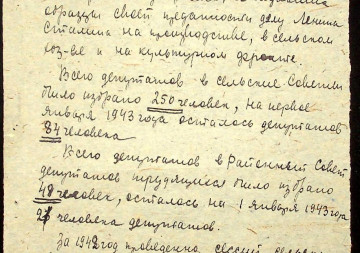 образцы своей преданности делу Ленина
Сталина на производстве, в сельском
хоз-ве и на культурном фронте.
Всего депутатов в сельские Советы
было избрано 250 человек, на первое
января 1943 года осталось депутатов
84 человека
Всего депутатов в Районный Совет
депутатов трудящихся было избрано
48 человек, осталось на 1 января 1943 года
человека депутатов.
За 1942 год проведено сессий